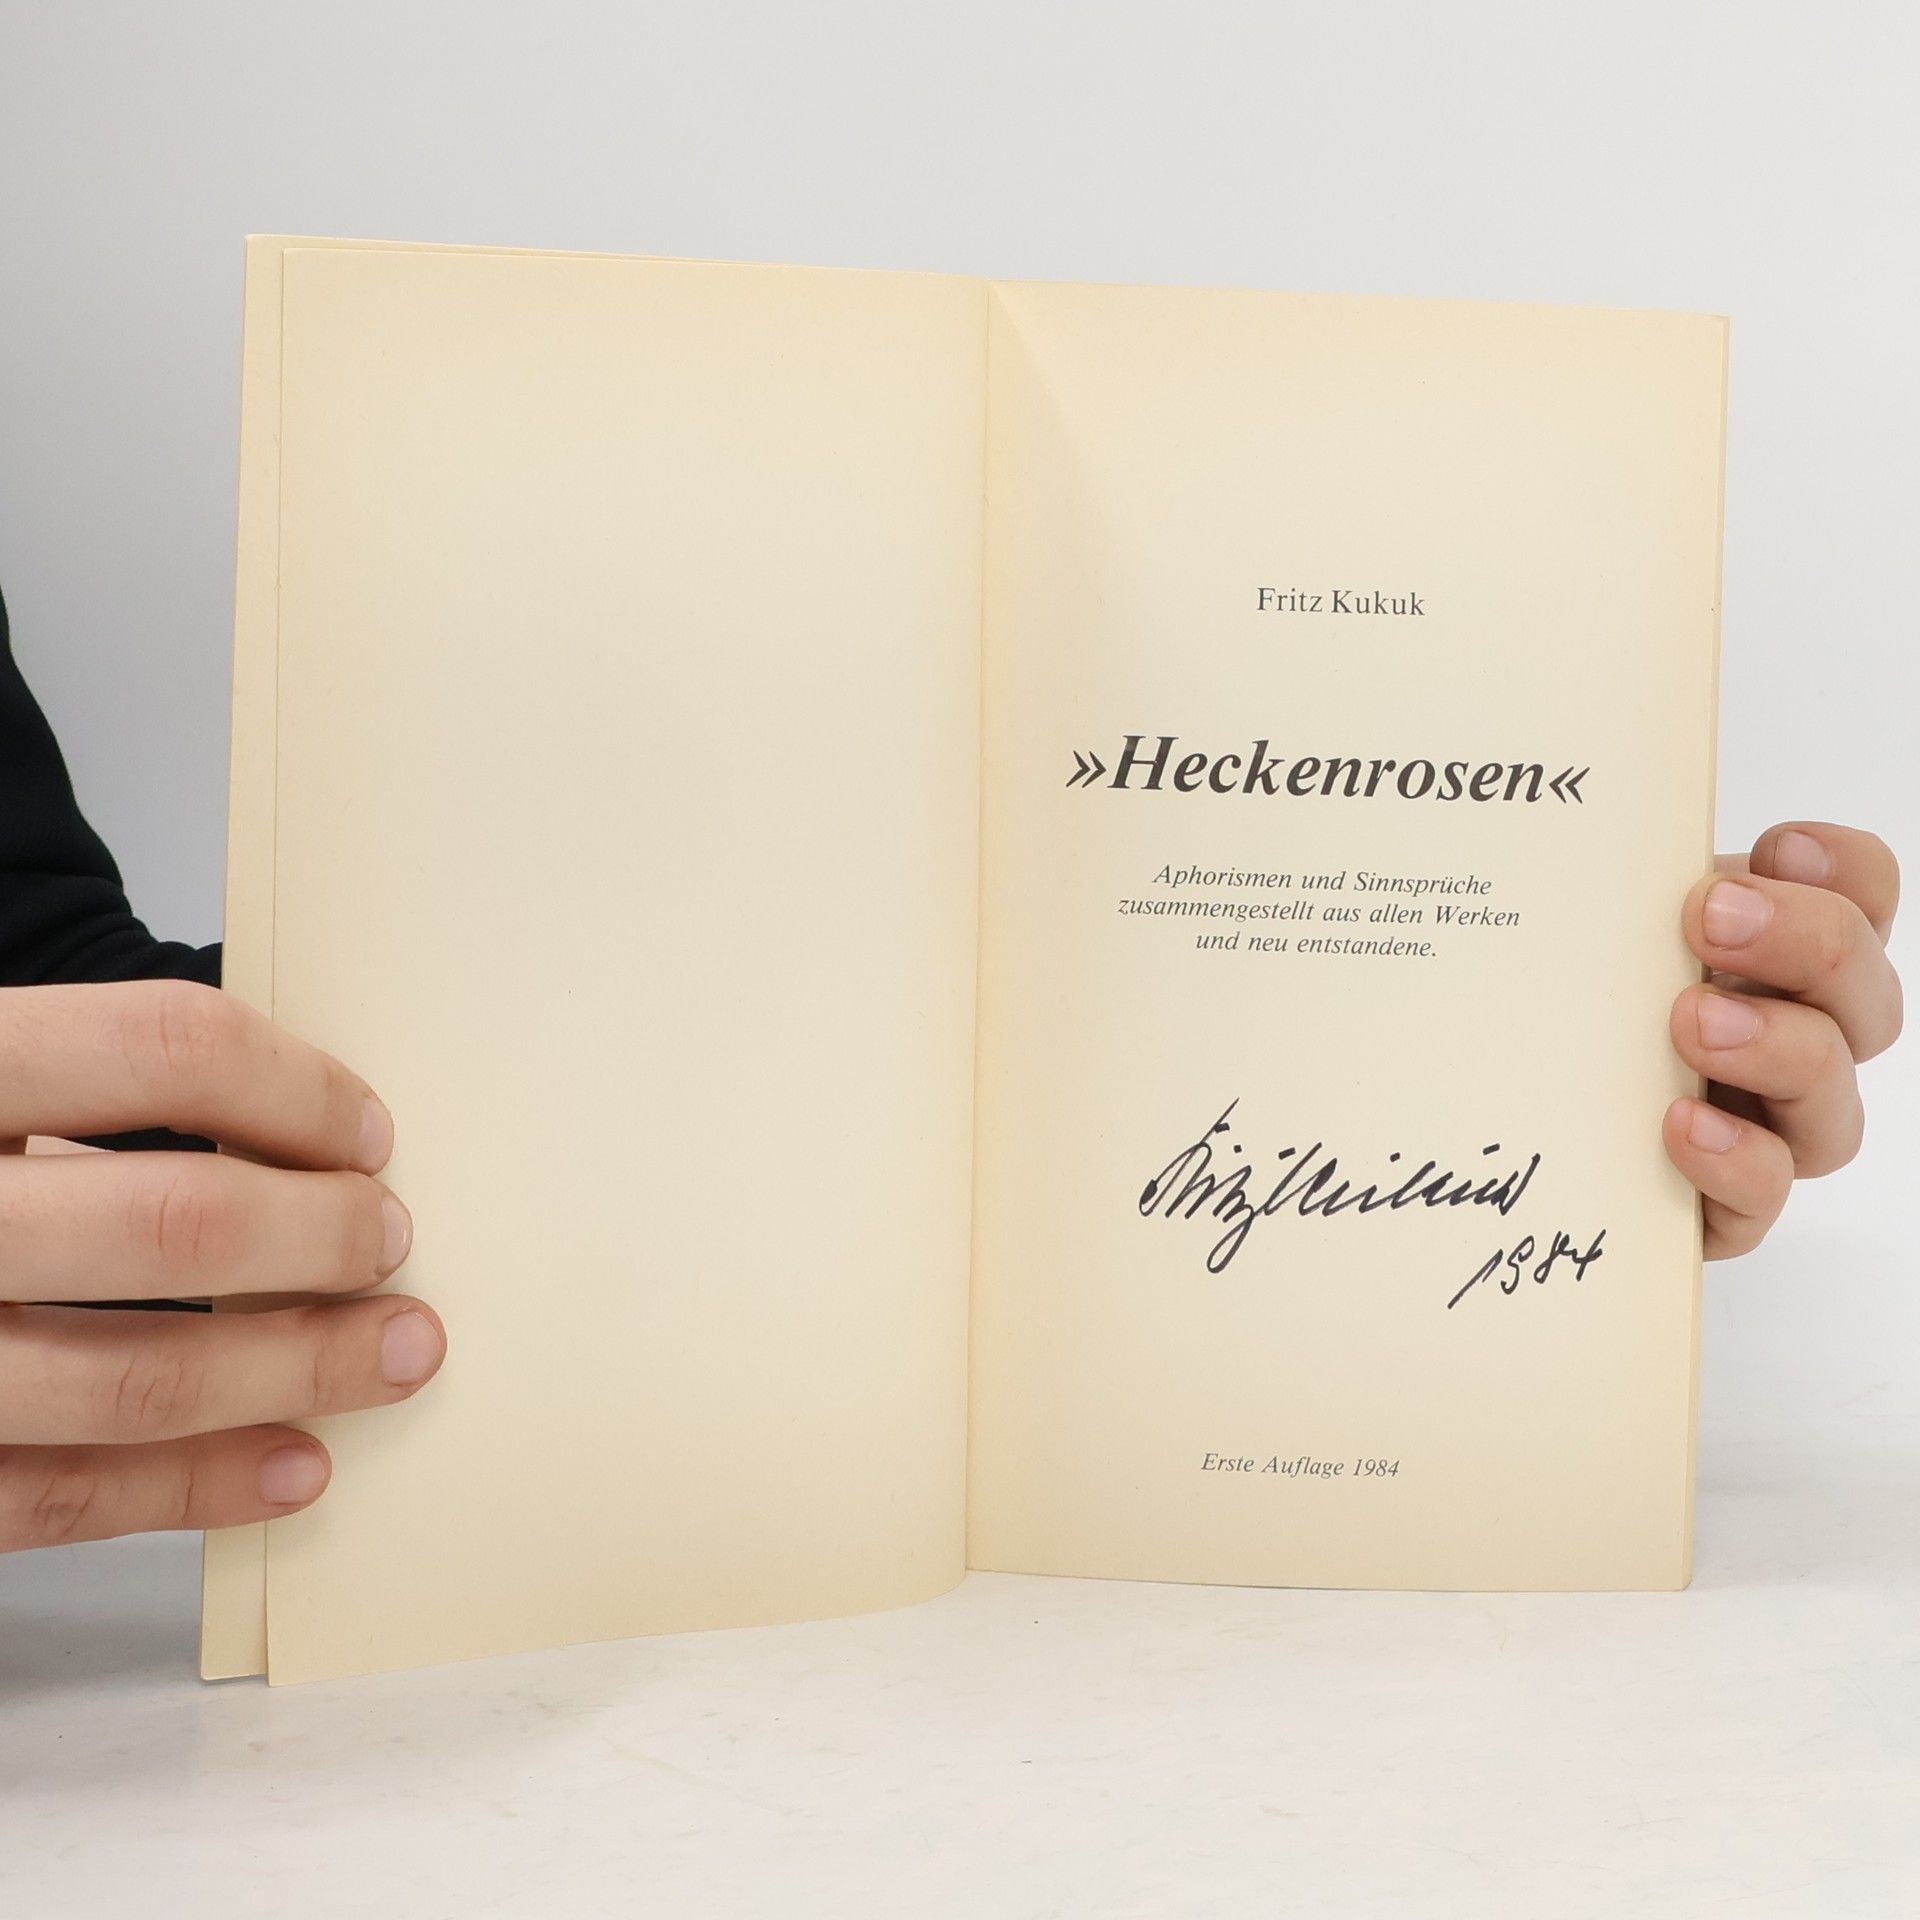 Fritz Kukuk
»Heckenrosen«
Aphorismen und Sinnsprüche
zusammengestellt aus allen Werken
und neu entstandene.
Fritz Kukuk
1984
Erste Auflage 1984